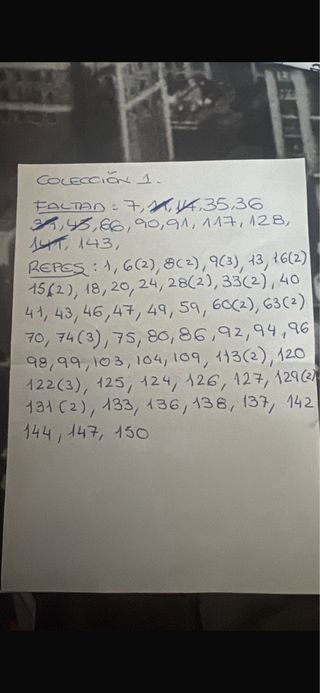 COLECCIÓN 1.
FALTAN: 7, 11, 14, 35, 36
39, 45, 66, 90, 91, 117, 128,
141, 143,
REPES: 1, 6(2), 8(2), 9(3), 13, 16(2)
15(2), 18, 20, 24, 28(2), 33(2), 40
41, 43, 46, 47, 49, 59, 60(2), 63(2)
70, 74(3), 75, 80, 86, 92, 94, 96
98, 99, 103, 104, 109, 113(2), 120
122(3), 125, 124, 126, 127, 129(2)
131(2), 133, 136, 138, 137, 142
144, 147, 150